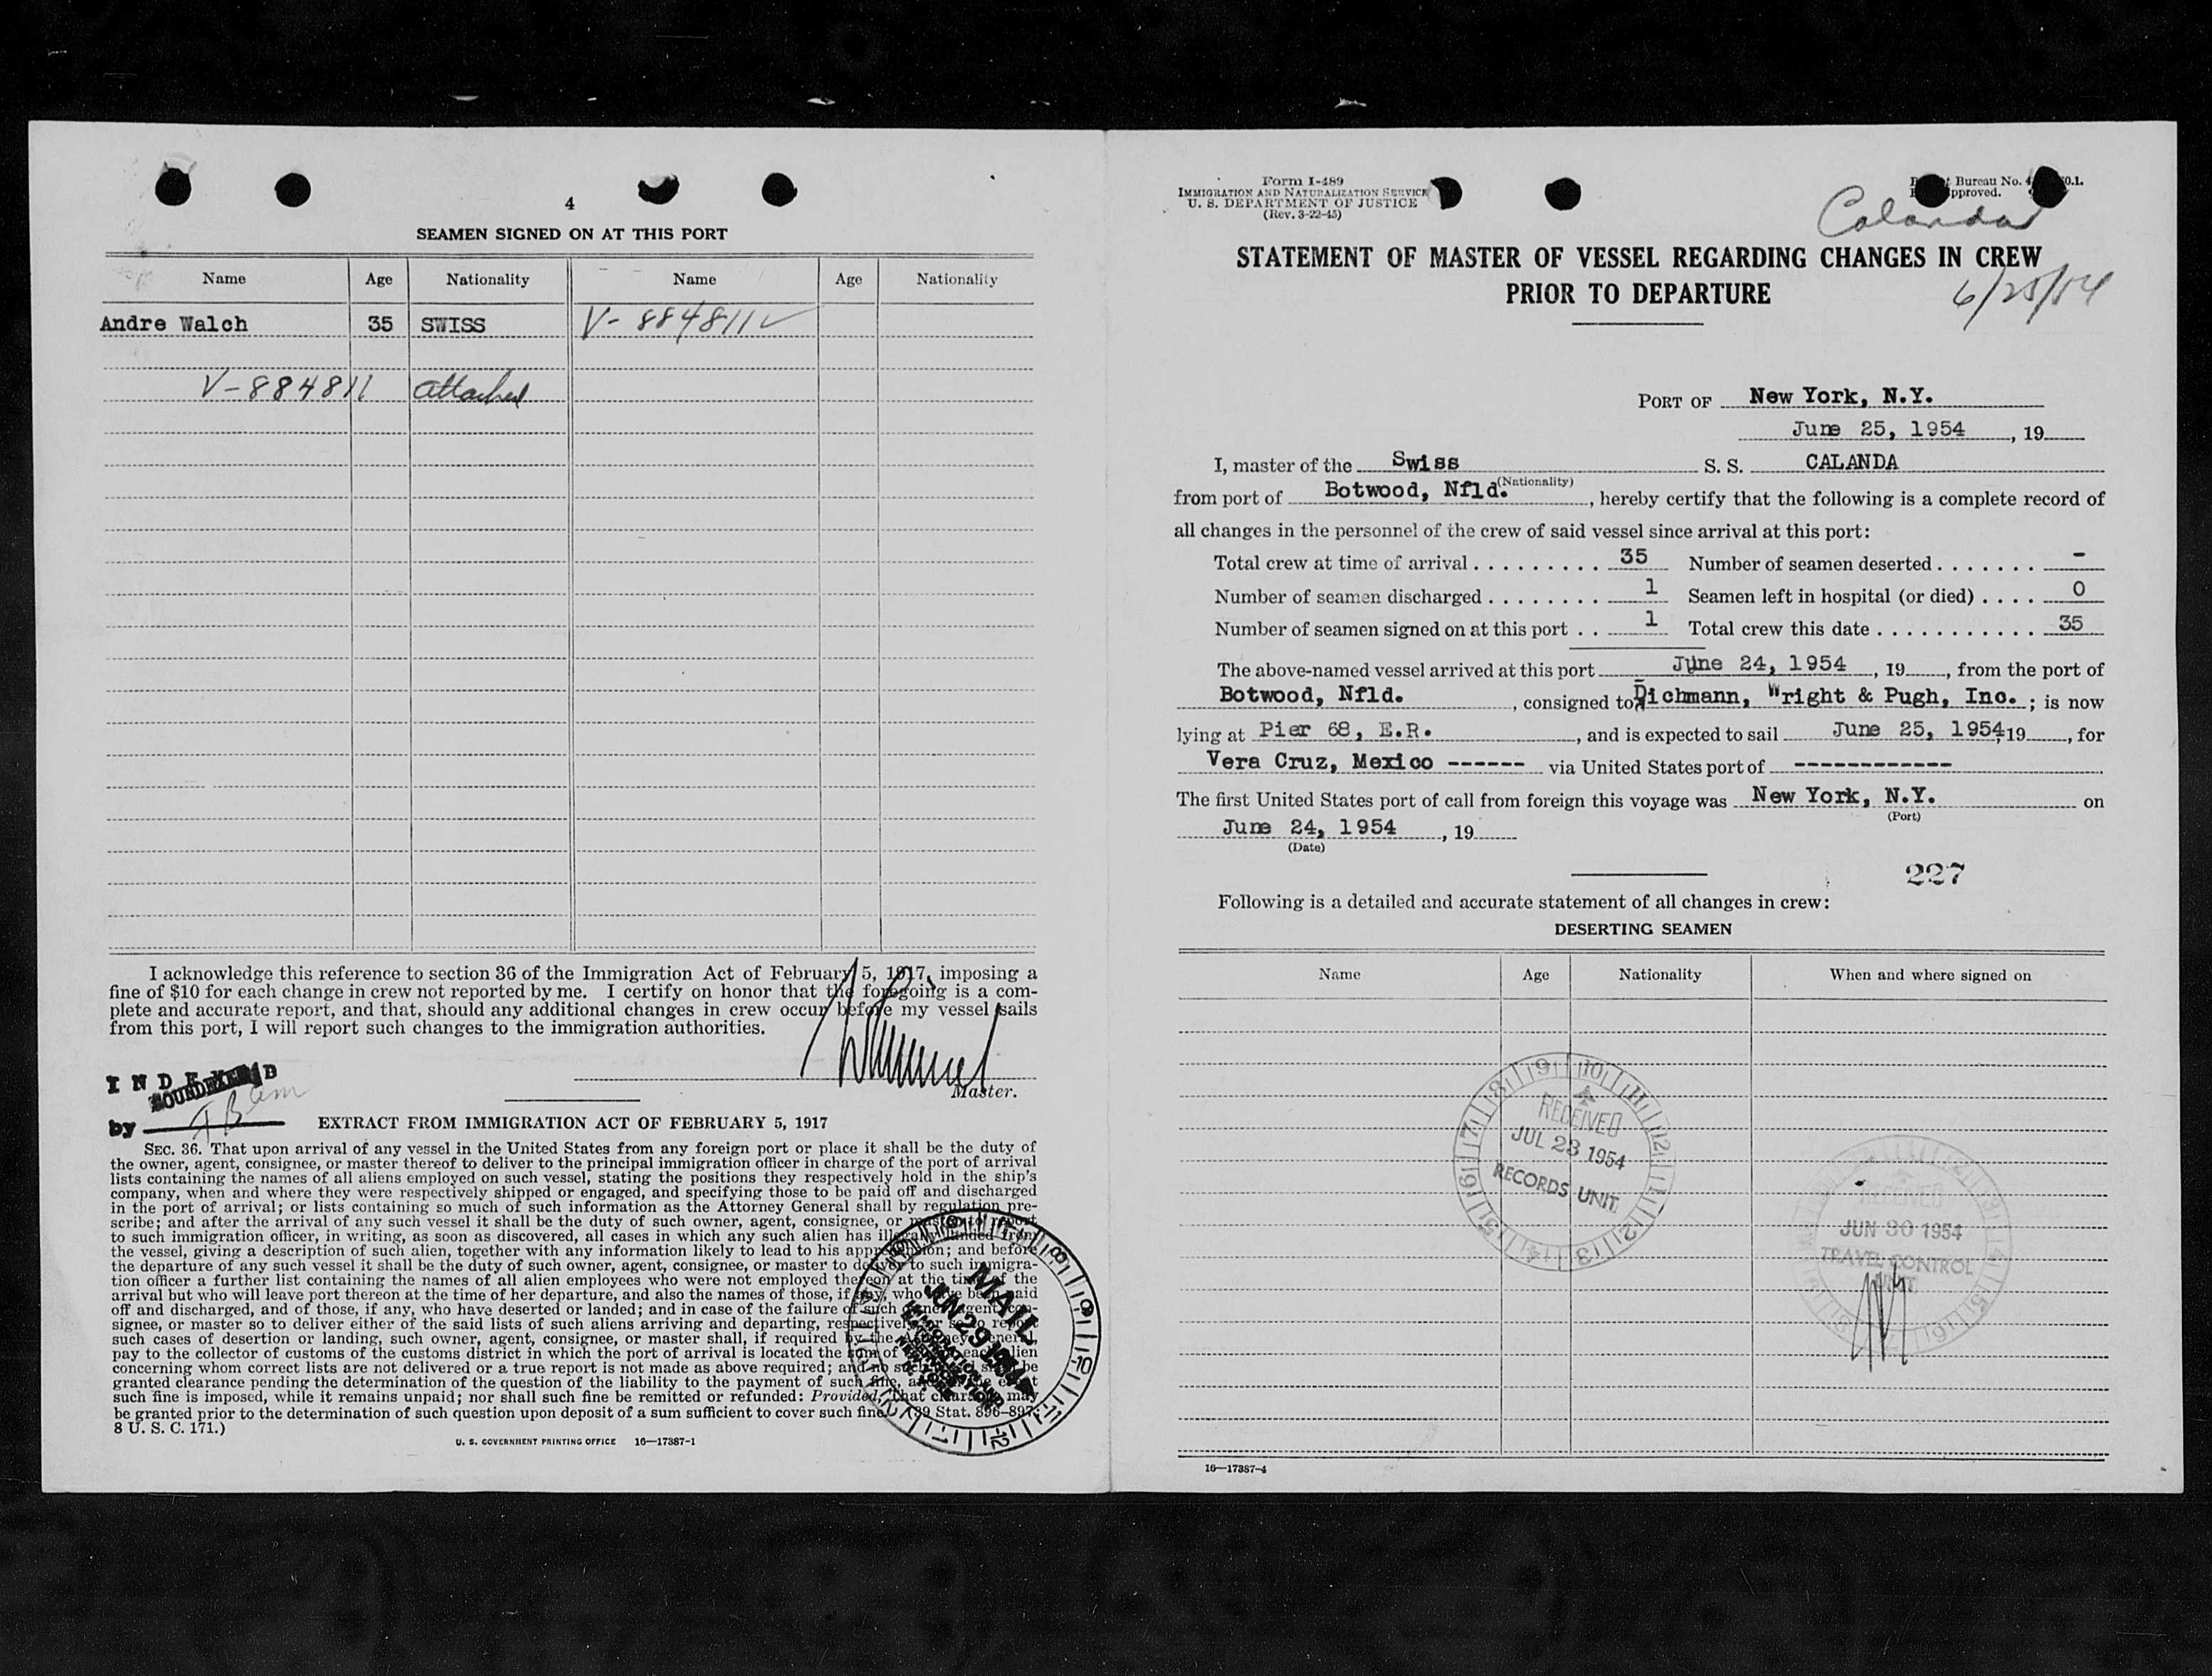 4
SEAMEN SIGNED ON AT THIS PORT
Name Age Nationality Name Age Nationality
Andre Walch 35 SWISS V-884811 ✓
V-884811 attached
I acknowledge this reference to section 36 of the Immigration Act of February 5, 1917, imposing a
fine of $10 for each change in crew not reported by me. I certify on honor that the foregoing is a com-
plete and accurate report, and that, should any additional changes in crew occur before my vessel sails
from this port, I will report such changes to the immigration authorities.
Master.
INDEXED
SOUNDEXED
by
EXTRACT FROM IMMIGRATION ACT OF FEBRUARY 5, 1917
SEC. 36. That upon arrival of any vessel in the United States from any foreign port or place it shall be the duty of
the owner, agent, consignee, or master thereof to deliver to the principal immigration officer in charge of the port of arrival
lists containing the names of all aliens employed on such vessel, stating the positions they respectively hold in the ship's
company, when and where they were respectively shipped or engaged, and specifying those to be paid off and discharged
in the port of arrival; or lists containing so much of such information as the Attorney General shall by regulation pre-
scribe; and after the arrival of any such vessel it shall be the duty of such owner, agent, consignee, or master to report
to such immigration officer, in writing, as soon as discovered, all cases in which any such alien has illegally landed from
the vessel, giving a description of such alien, together with any information likely to lead to his apprehension; and before
the departure of any such vessel it shall be the duty of such owner, agent, consignee, or master to deliver to such immigra-
tion officer a further list containing the names of all alien employees who were not employed thereon at the time of the
arrival but who will leave port thereon at the time of her departure, and also the names of those, if any, who have been paid
off and discharged, and of those, if any, who have deserted or landed; and in case of the failure of such owner, agent, con-
signee, or master so to deliver either of the said lists of such aliens arriving and departing, respectively, or so to report
such cases of desertion or landing, such owner, agent, consignee, or master shall, if required by the Attorney General,
pay to the collector of customs of the customs district in which the port of arrival is located the sum of each alien
concerning whom correct lists are not delivered or a true report is not made as above required; and no such vessel shall be
granted clearance pending the determination of the question of the liability to the payment of such fine, and in the event
such fine is imposed, while it remains unpaid; nor shall such fine be remitted or refunded: Provided, That clearance may
be granted prior to the determination of such question upon deposit of a sum sufficient to cover such fine. (39 Stat. 896-897;
8 U. S. C. 171.)
U. S. GOVERNMENT PRINTING OFFICE 16—17387-1
MAIL
JUN 29 1954
IMMIGRATION AND
NATURALIZATION
NEW YORK
Form I-489
IMMIGRATION AND NATURALIZATION SERVICE
U. S. DEPARTMENT OF JUSTICE
(Rev. 3-22-45)
Bureau No.
approved.
Calanda
STATEMENT OF MASTER OF VESSEL REGARDING CHANGES IN CREW
PRIOR TO DEPARTURE
6/25/54
PORT OF New York, N.Y.
June 25, 1954, 19
I, master of the Swiss S. S. CALANDA
(Nationality)
from port of Botwood, Nfld., hereby certify that the following is a complete record of
all changes in the personnel of the crew of said vessel since arrival at this port:
Total crew at time of arrival . . . . . . . . . 35 Number of seamen deserted . . . . . . . -
Number of seamen discharged . . . . . . . . 1 Seamen left in hospital (or died) . . . . 0
Number of seamen signed on at this port . . 1 Total crew this date . . . . . . . . . . . . 35
The above-named vessel arrived at this port June 24, 1954, 19, from the port of
Botwood, Nfld., consigned to Dichmann, Wright & Pugh, Inc.; is now
lying at Pier 68, E.R., and is expected to sail June 25, 1954, 19, for
Vera Cruz, Mexico ------ via United States port of ------------
The first United States port of call from foreign this voyage was New York, N.Y. on
(Port)
June 24, 1954, 19
(Date)
227
Following is a detailed and accurate statement of all changes in crew:
DESERTING SEAMEN
Name Age Nationality When and where signed on
RECEIVED
JUL 28 1954
RECORDS UNIT
RECEIVED
JUN 30 1954
TRAVEL CONTROL
UNIT
16—17387-4